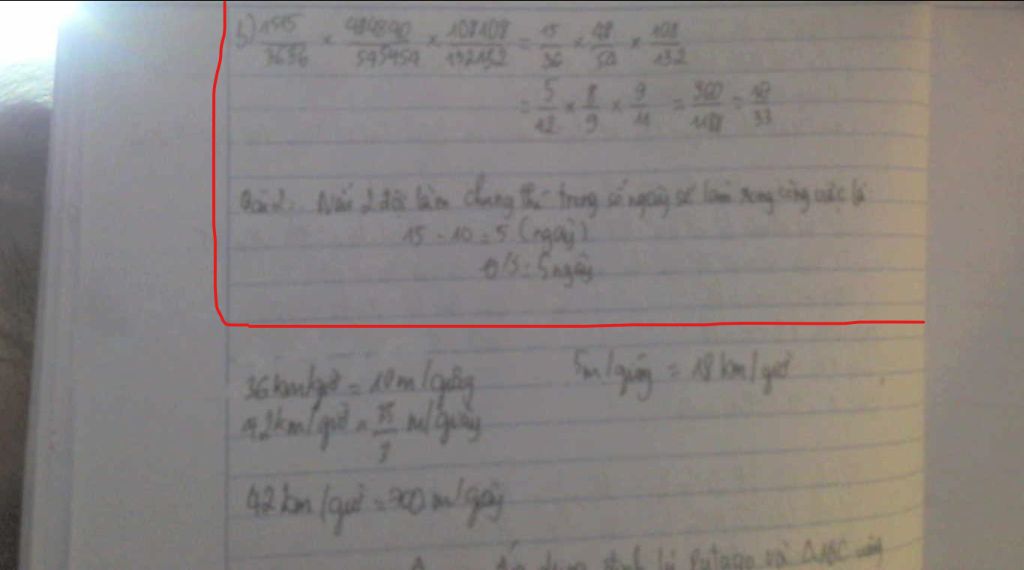 b) 1515/3636 × 484848/545454 × 108108/132132 = 15/36 × 48/54 × 108/132
= 5/12 × 8/9 × 9/11 = 360/1188 = 10/33
Bài 2: Nếu 2 đội làm chung thì trong số ngày sẽ làm xong công việc là
15 - 10 = 5 (ngày)
Đ/S: 5 ngày
36km/giờ = 10m/giây 5m/giây = 18km/giờ
42km/giờ = 35/3 m/giây
42km/giờ = 700m/
lý Pytago và ΔABC